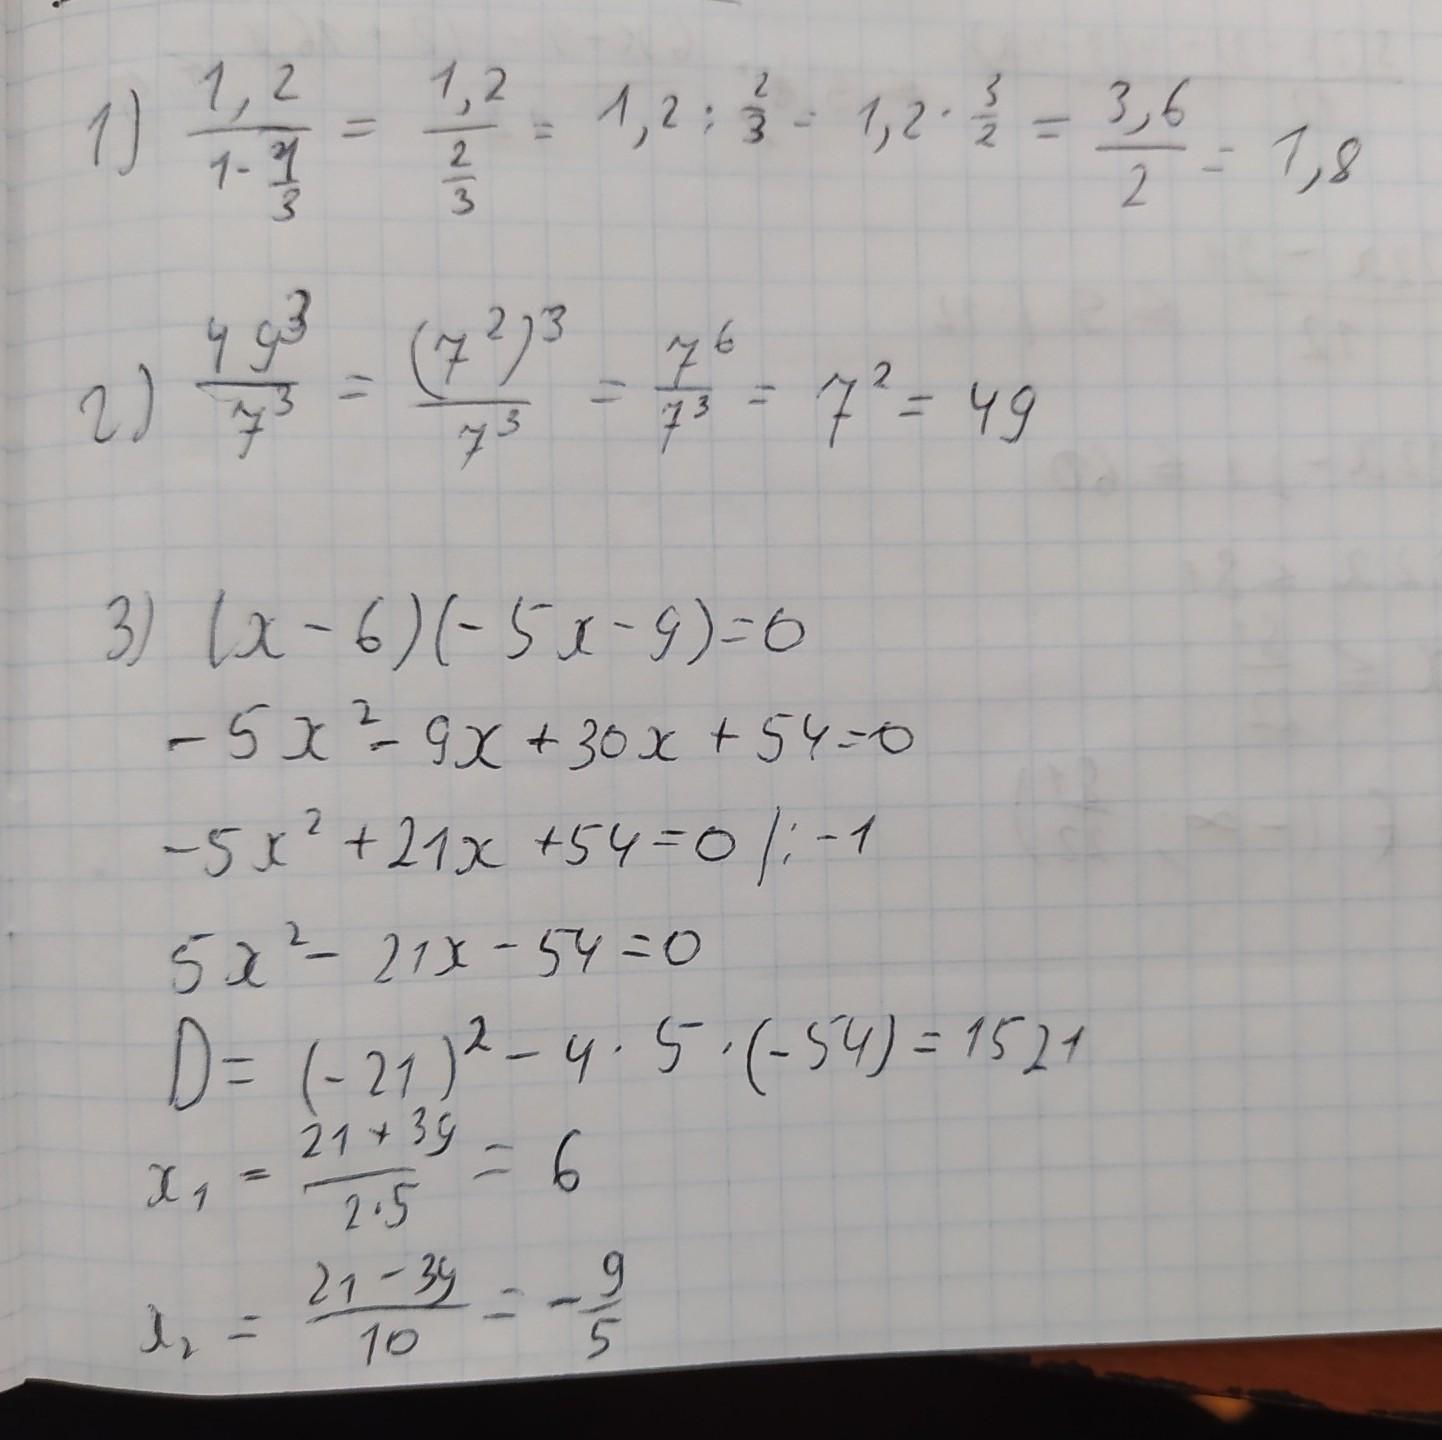 1) 1,2/(1-1/3) = 1,2/(2/3) = 1,2 : 2/3 = 1,2 · 3/2 = 3,6/2 = 1,8
2) 49³/7³ = (7²)³/7³ = 7⁶/7³ = 7² = 49
3) (x-6)(-5x-9)=0
-5x²-9x+30x+54=0
-5x²+21x+54=0 /:-1
5x²-21x-54=0
D=(-21)²-4·5·(-54)=1521
x₁ = (21+39)/(2·5) = 6
x₂ = (21-39)/10 = -9/5